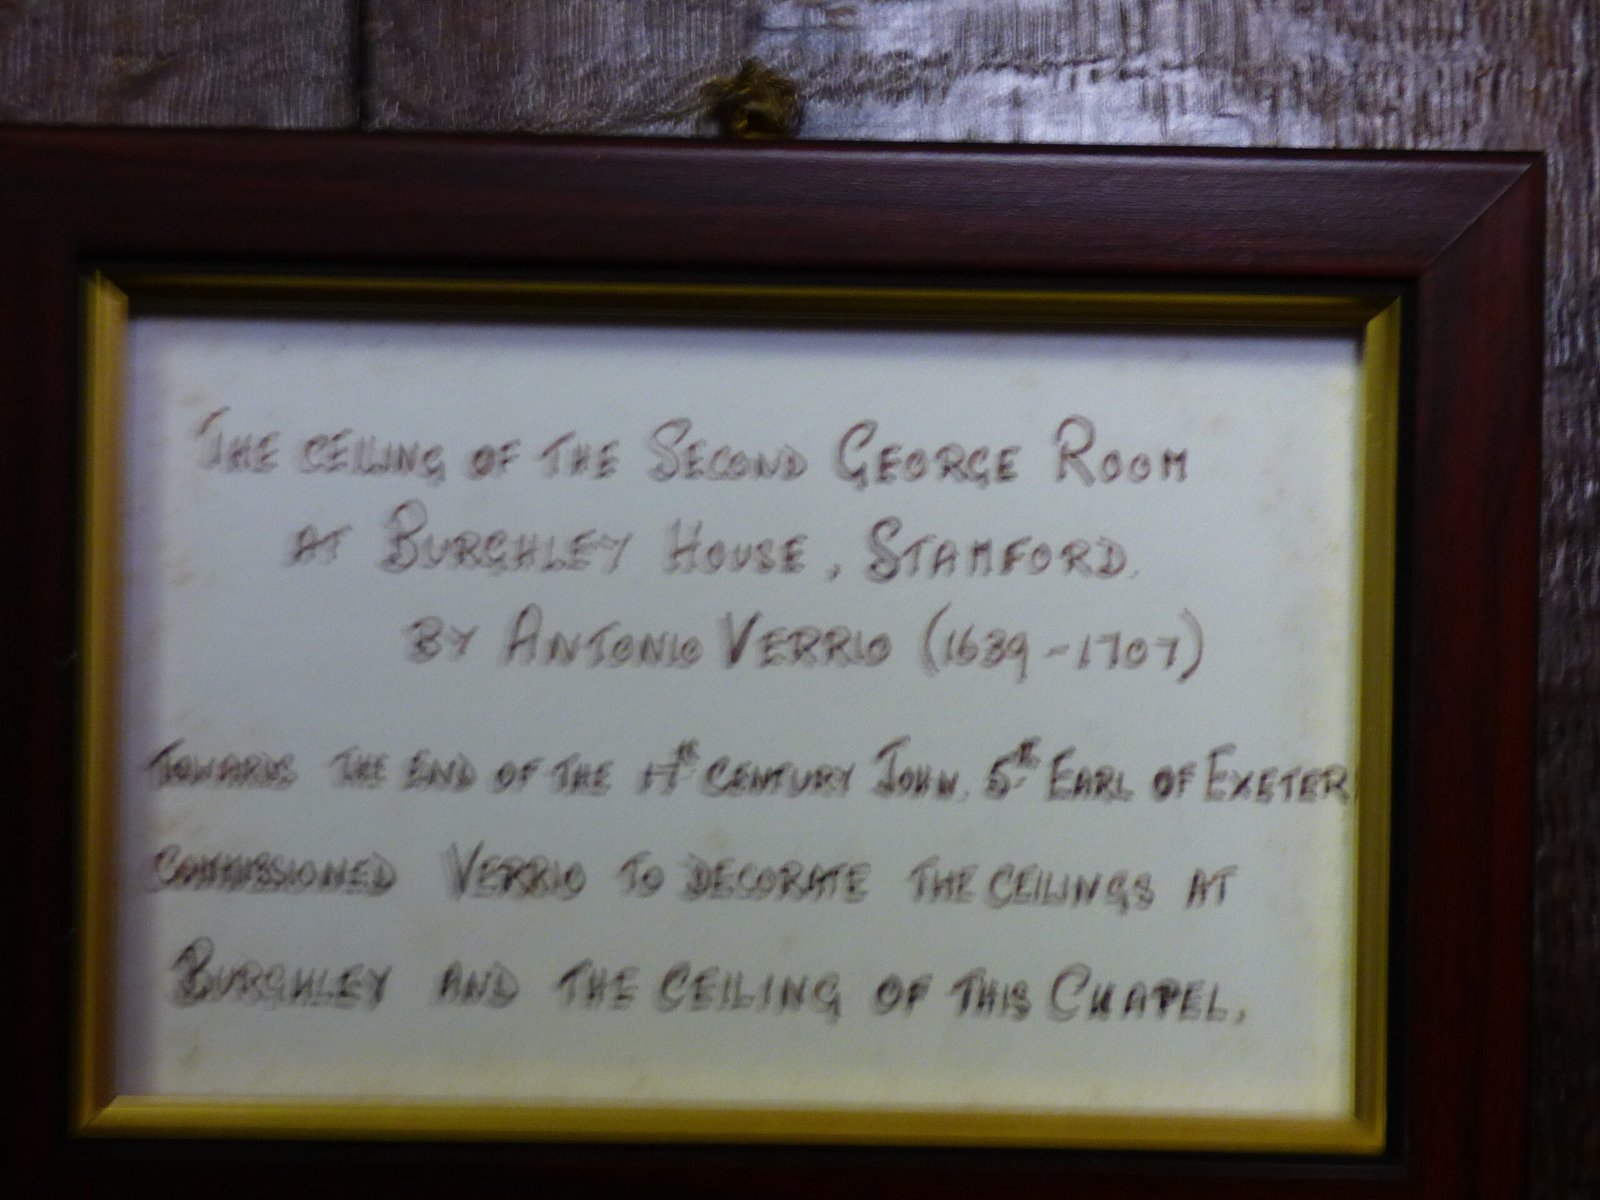 THE CEILING OF THE SECOND GEORGE ROOM
AT BURGHLEY HOUSE, STAMFORD.
BY ANTONIO VERRIO (1639-1707)
TOWARDS THE END OF THE 17th CENTURY JOHN, 5th EARL OF EXETER
COMMISSIONED VERRIO TO DECORATE THE CEILINGS AT
BURGHLEY AND THE CEILING OF THIS CHAPEL.